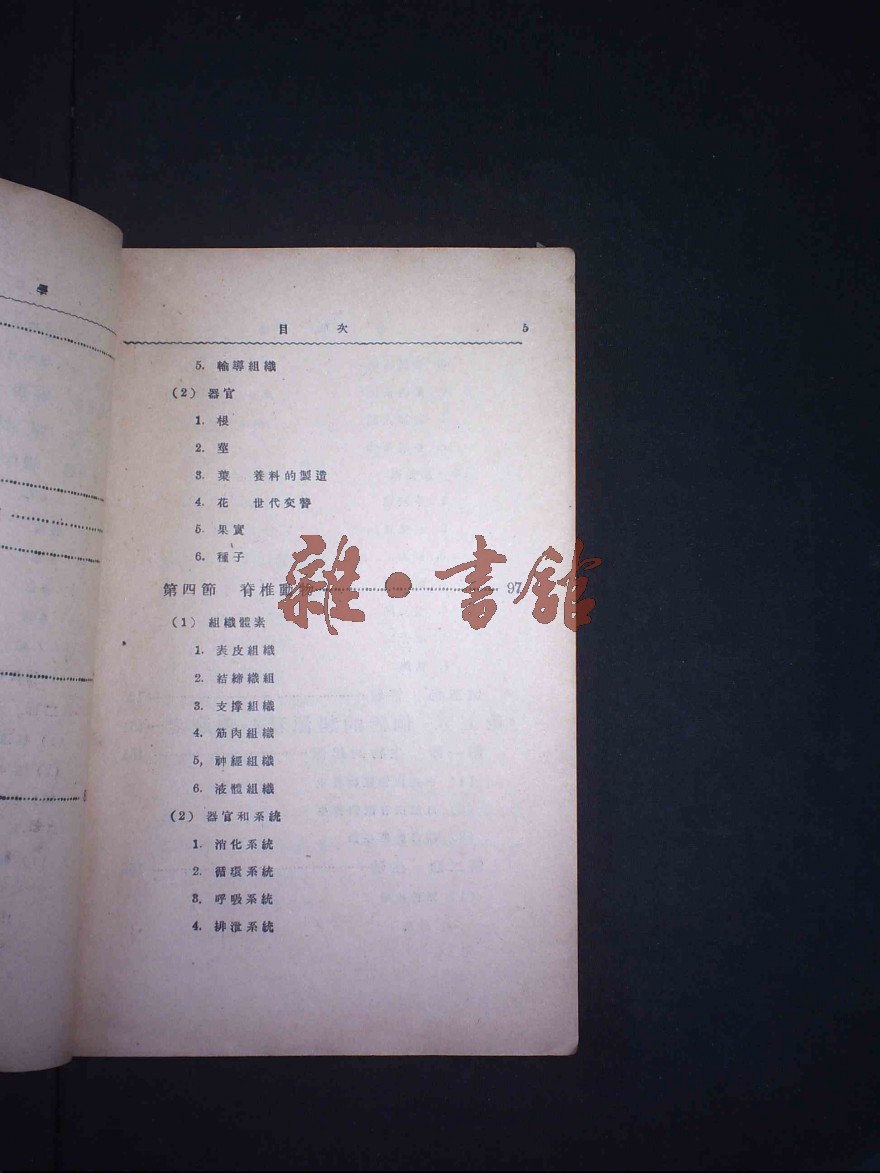 學
目 次 5
5. 輸導組織
(2) 器官
1. 根
2. 莖
3. 葉 養料的製造
4. 花 世代交替
5. 果實
6. 種子
第四節 脊椎動物 97
雜•書館
(1) 組織體素
1. 表皮組織
2. 結締織組
3. 支撐組織
4. 筋肉組織
5, 神經組織
6. 液體組織
(2) 器官和系統
1. 消化系統
2. 循環系統
3. 呼吸系統
4. 排泄系統